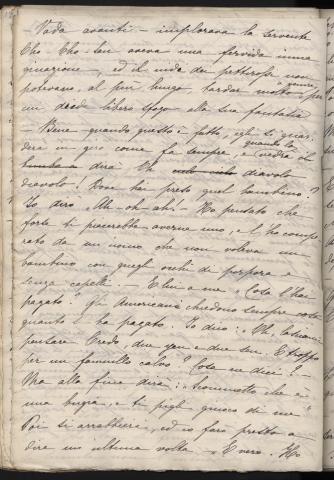 - Vada avanti - implorava la servente
Cho-Cho-San aveva una fervida imma
ginazione, ed il nido dei pettirossi non
potevano, al più lungo, tardar molto
un decida libero sfogo alla sua fantasia
- Bene quando questo è fatto, egli si guar
derà in giro come fa sempre, e quando lo vedrà
dirà: Oh diavolo
diavolo! Dove hai preso quel bambino?
Io dirò: Ah - oh - ah! - Ho pensato che
forse ti piacerebbe averne uno, e l'ho compe
rato da un uomo che non voleva un
bambino con quegli occhi di porpora e
senza capelli. - E lui a me "Cosa l'hai
pagato?" Gli Americani chiedono sempre cosa
quanto l'ha pagato. Io dico: "Oh lasciami
pensare. Credo, due yen e due sen. È troppo
per un fanciullo calvo? Cosa ne dici? -
Ma alla fine dirà: "Scommetto che è
una bugia, e ti pigli giuoco di me"
Poi si arrabbierà, ed io farò presto a
dire un'ultima volta - È vero. Ho